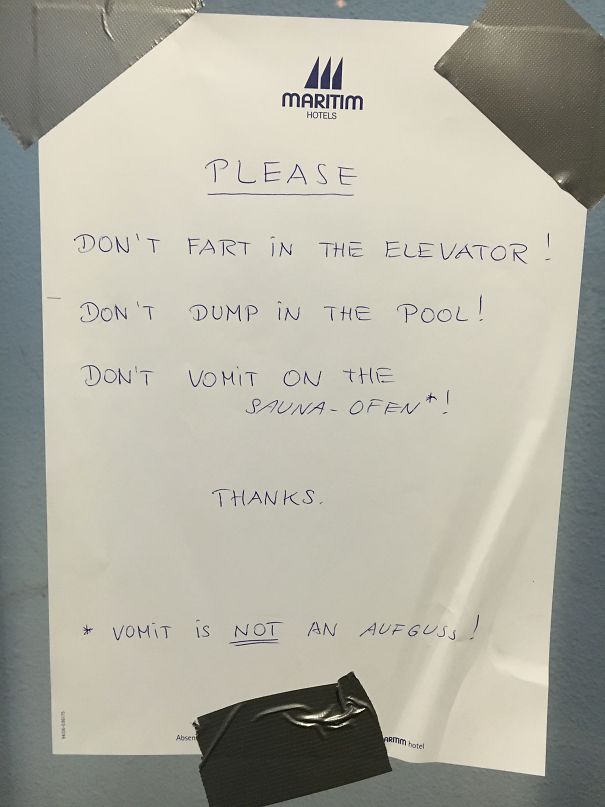 MARITIM
HOTELS
PLEASE
DON'T FART iN THE ELEVATOR!
DON'T DUMP iN THE POOL!
DON'T VOMiT ON THE
SAUNA-OFEN*!
THANKS.
* VOMiT iS NOT AN AUFGUSS!
MARITIM hotel